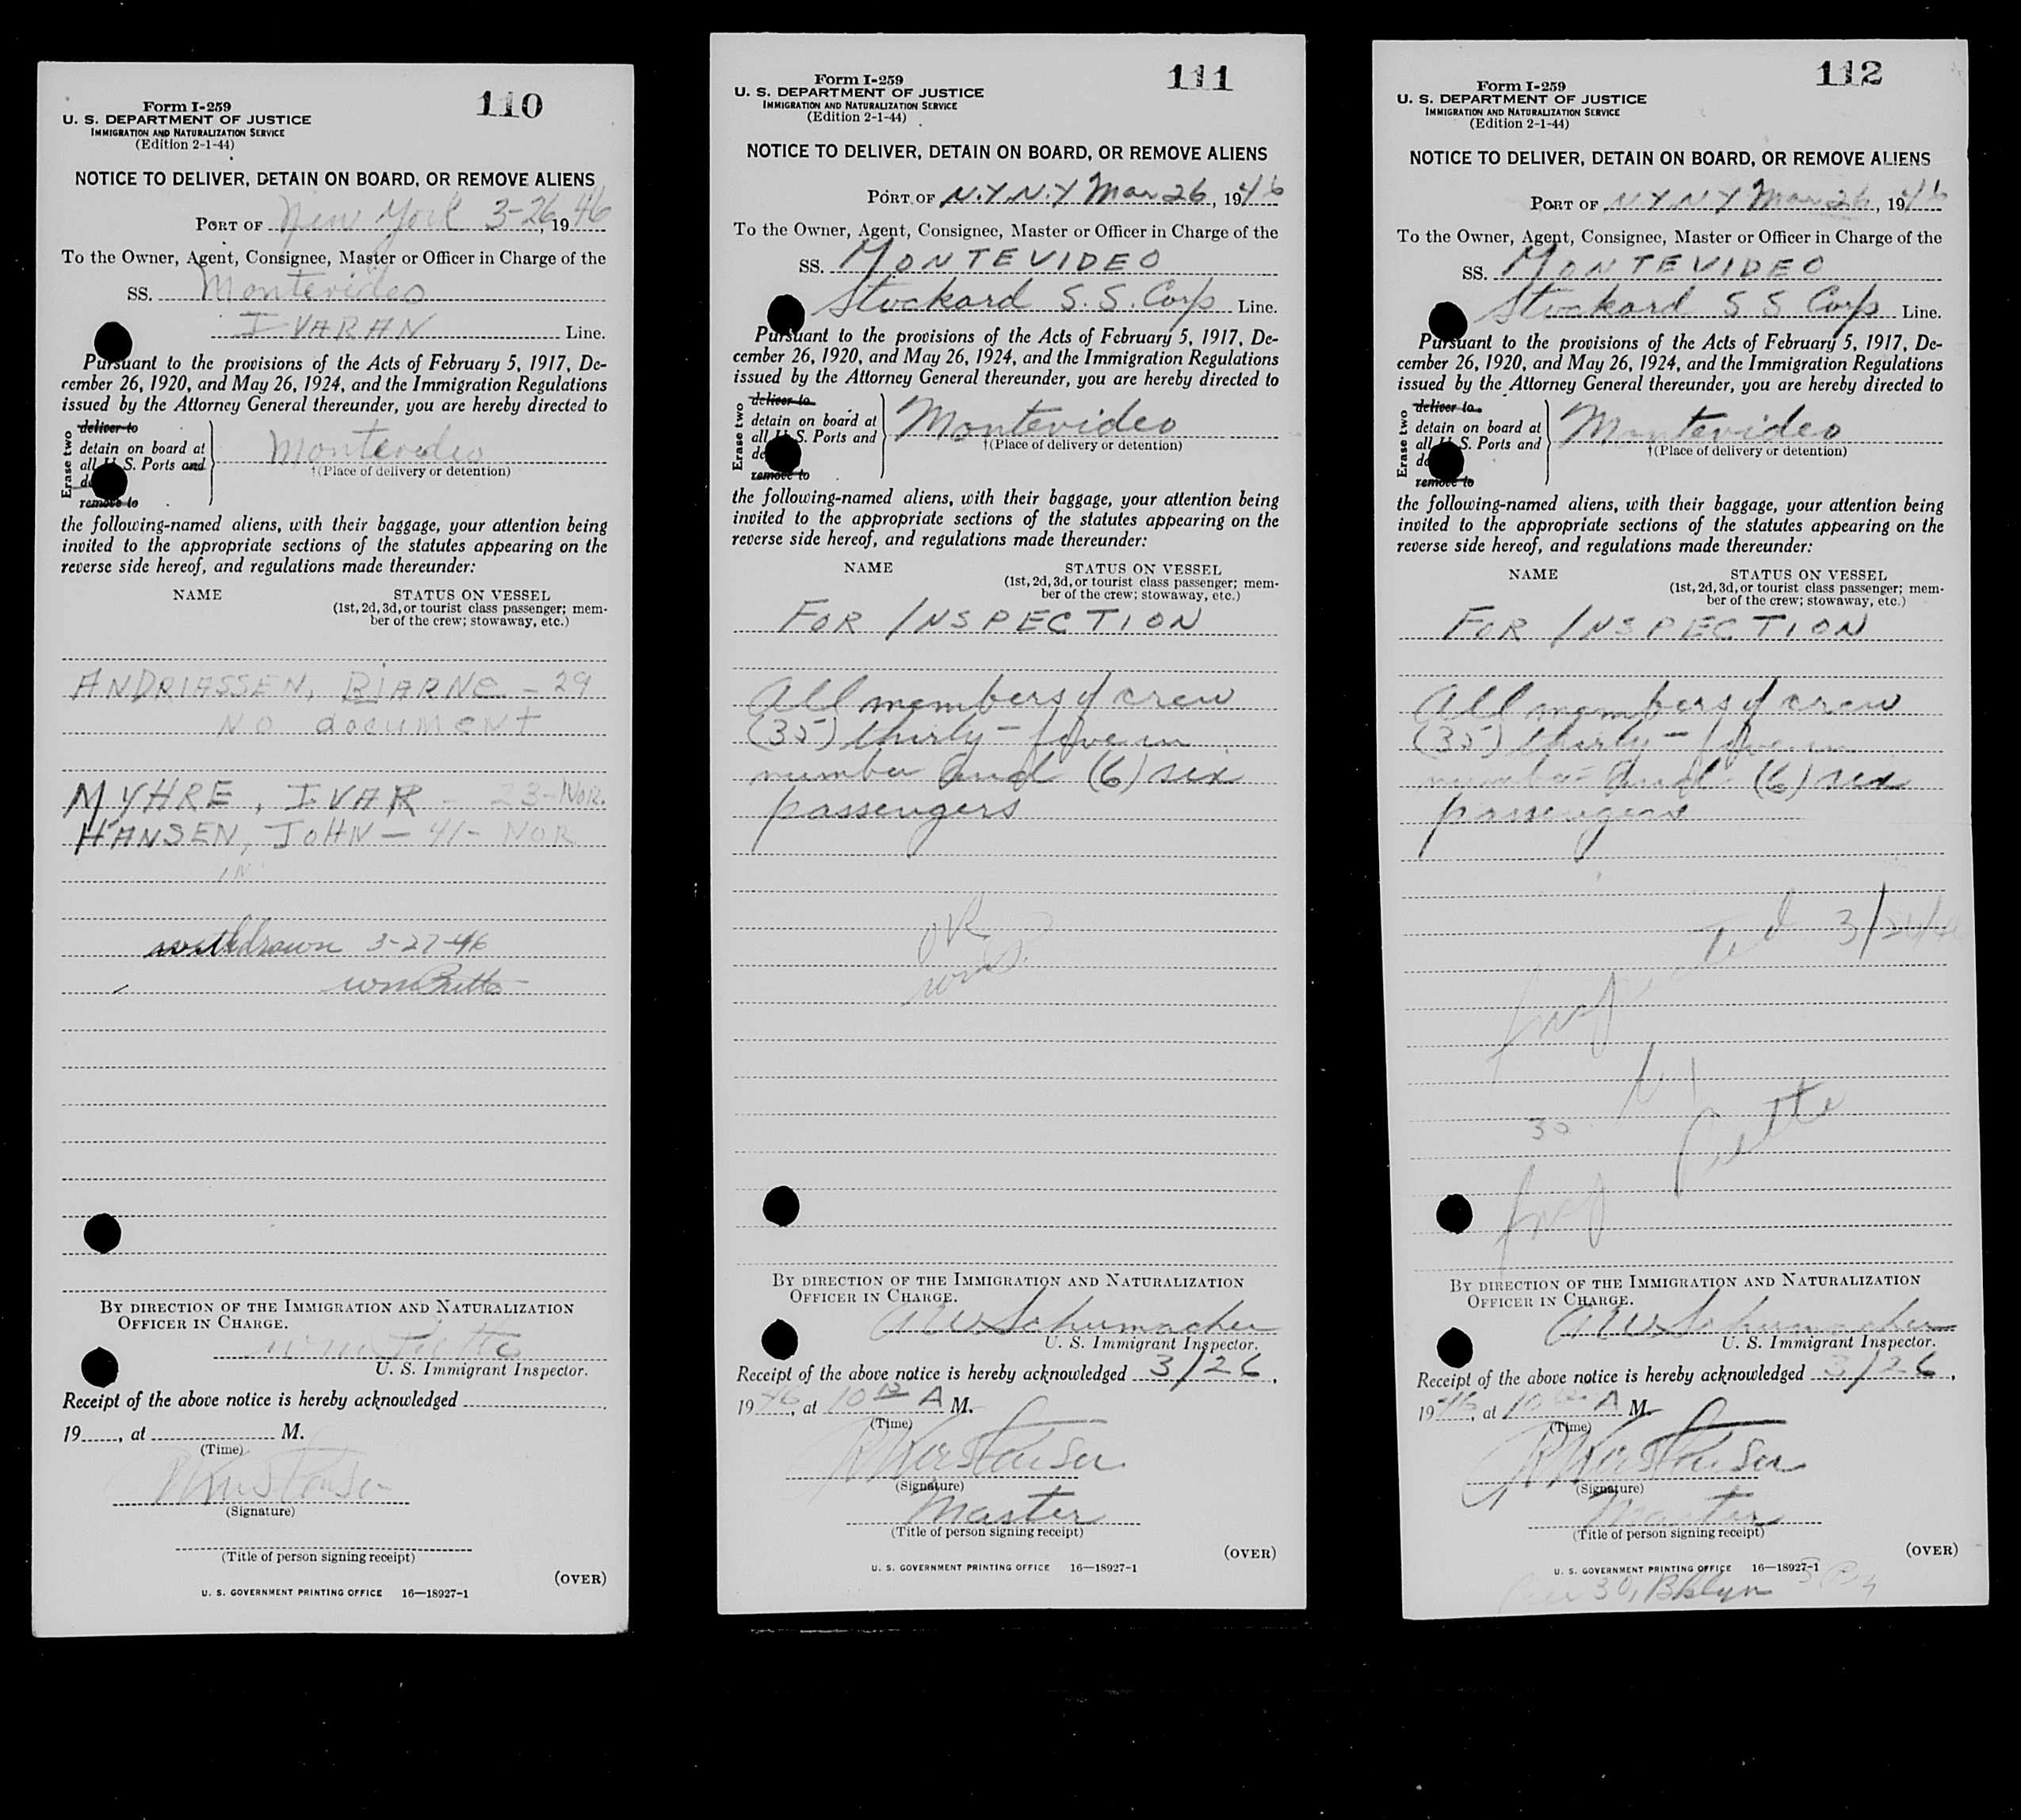 110
Form I-259
U. S. DEPARTMENT OF JUSTICE
IMMIGRATION AND NATURALIZATION SERVICE
(Edition 2-1-44)
NOTICE TO DELIVER, DETAIN ON BOARD, OR REMOVE ALIENS
PORT OF New York 3-26, 1946
To the Owner, Agent, Consignee, Master or Officer in Charge of the
SS. Montevideo
IVARAN Line.
Pursuant to the provisions of the Acts of February 5, 1917, De-
cember 26, 1920, and May 26, 1924, and the Immigration Regulations
issued by the Attorney General thereunder, you are hereby directed to
Erase two
deliver to
detain on board at
all U. S. Ports and
remove to
Montevideo
†(Place of delivery or detention)
the following-named aliens, with their baggage, your attention being
invited to the appropriate sections of the statutes appearing on the
reverse side hereof, and regulations made thereunder:
NAME STATUS ON VESSEL
(1st, 2d, 3d, or tourist class passenger; mem-
ber of the crew; stowaway, etc.)
ANDRIASSEN, BJARNE - 29
NO document
MYHRE, IVAR - 23-NOR.
HANSEN, JOHN - 41- NOR
withdrawn 3-27-46
BY DIRECTION OF THE IMMIGRATION AND NATURALIZATION
OFFICER IN CHARGE.
U. S. Immigrant Inspector.
Receipt of the above notice is hereby acknowledged
19 , at M.
(Time)
(Signature)
(Title of person signing receipt)
(OVER)
U. S. GOVERNMENT PRINTING OFFICE 16—18927-1
111
Form I-259
U. S. DEPARTMENT OF JUSTICE
IMMIGRATION AND NATURALIZATION SERVICE
(Edition 2-1-44)
NOTICE TO DELIVER, DETAIN ON BOARD, OR REMOVE ALIENS
PORT OF N.Y.N.Y Mar 26, 1946
To the Owner, Agent, Consignee, Master or Officer in Charge of the
SS. MONTEVIDEO
Stockard S.S. Corp Line.
Pursuant to the provisions of the Acts of February 5, 1917, De-
cember 26, 1920, and May 26, 1924, and the Immigration Regulations
issued by the Attorney General thereunder, you are hereby directed to
Erase two
deliver to
detain on board at
all U. S. Ports and
remove to
Montevideo
†(Place of delivery or detention)
the following-named aliens, with their baggage, your attention being
invited to the appropriate sections of the statutes appearing on the
reverse side hereof, and regulations made thereunder:
NAME STATUS ON VESSEL
(1st, 2d, 3d, or tourist class passenger; mem-
ber of the crew; stowaway, etc.)
FOR INSPECTION
All members of crew
(35) thirty-five in
number and (6) six
passengers
OK
BY DIRECTION OF THE IMMIGRATION AND NATURALIZATION
OFFICER IN CHARGE.
AW Schumacher
U. S. Immigrant Inspector.
Receipt of the above notice is hereby acknowledged 3/26,
1946, at 10 A M.
(Time)
(Signature)
Master
(Title of person signing receipt)
(OVER)
U. S. GOVERNMENT PRINTING OFFICE 16—18927-1
112
Form I-259
U. S. DEPARTMENT OF JUSTICE
IMMIGRATION AND NATURALIZATION SERVICE
(Edition 2-1-44)
NOTICE TO DELIVER, DETAIN ON BOARD, OR REMOVE ALIENS
PORT OF N.Y N Y Mar 26, 1946
To the Owner, Agent, Consignee, Master or Officer in Charge of the
SS. MONTEVIDEO
Stockard S S Corp Line.
Pursuant to the provisions of the Acts of February 5, 1917, De-
cember 26, 1920, and May 26, 1924, and the Immigration Regulations
issued by the Attorney General thereunder, you are hereby directed to
Erase two
deliver to
detain on board at
all U. S. Ports and
remove to
Montevideo
†(Place of delivery or detention)
the following-named aliens, with their baggage, your attention being
invited to the appropriate sections of the statutes appearing on the
reverse side hereof, and regulations made thereunder:
NAME STATUS ON VESSEL
(1st, 2d, 3d, or tourist class passenger; mem-
ber of the crew; stowaway, etc.)
FOR INSPECTION
All members of crew
(35) thirty-five in
number and (6) six
passengers
30
BY DIRECTION OF THE IMMIGRATION AND NATURALIZATION
OFFICER IN CHARGE.
AW Schumacher
U. S. Immigrant Inspector.
Receipt of the above notice is hereby acknowledged 3/26,
1946, at 10 A M
(Time)
(Signature)
Master
(Title of person signing receipt)
(OVER)
U. S. GOVERNMENT PRINTING OFFICE 16—18927-1
30, Bklyn